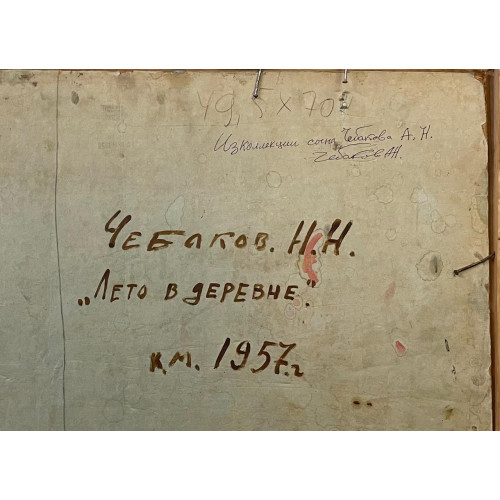 49,5 x 70
Из коллекции сына Чебакова А. Н.
Чебаков А.Н.
Чебаков. Н.Н.
„Лето в деревне."
к.м. 1957.г